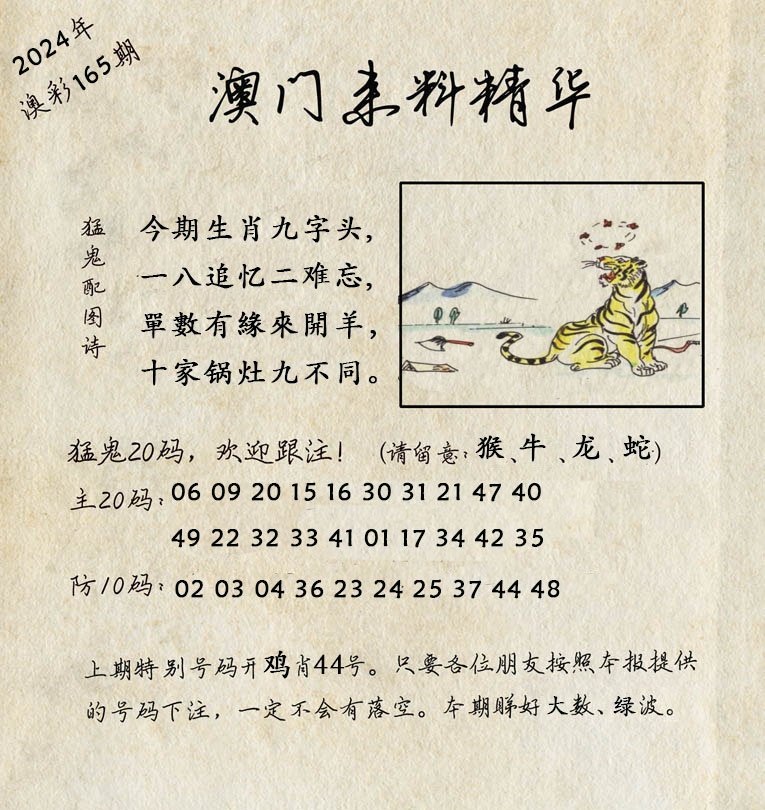 2024年
澳彩165期
澳门来料精华
猛鬼配图诗
今期生肖九字头，
一八追忆二难忘，
單數有緣來開羊，
十家锅灶九不同。
猛鬼20码，欢迎跟注！（请留意：猴、牛、龙、蛇）
主20码：06 09 20 15 16 30 31 21 47 40
49 22 32 33 41 01 17 34 42 35
防10码：02 03 04 36 23 24 25 37 44 48
上期特别号码开鸡肖44号。只要各位朋友按照本报提供
的号码下注，一定不会有落空。本期睇好大数、绿波。